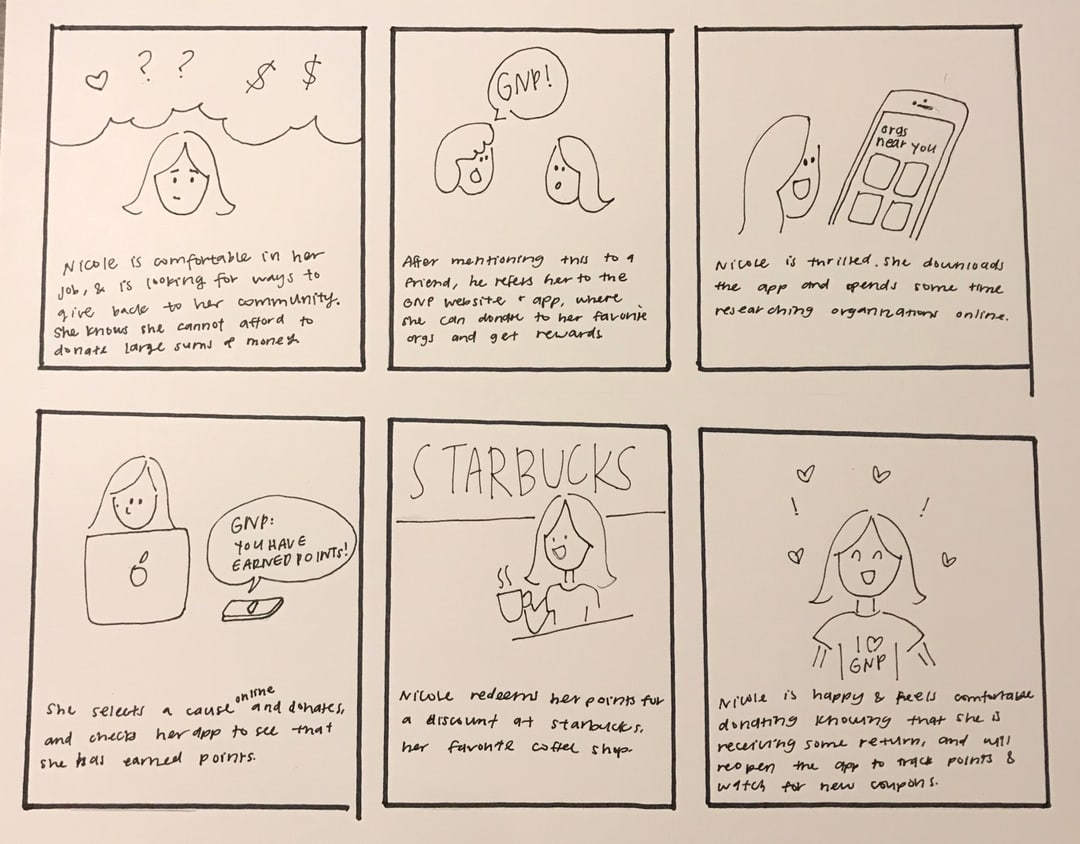 ? ? $ $
Nicole is comfortable in her
job, & is looking for ways to
give back to her community.
She knows she cannot afford to
donate large sums of money
GNP!
After mentioning this to a
friend, he refers her to the
GNP website + app, where
she can donate to her favorite
orgs and get rewards
orgs
near you
Nicole is thrilled. She downloads
the app and spends some time
researching organizations online.
GNP:
YOU HAVE
EARNED POINTS!
She selects a cause online and donates,
and checks her app to see that
she has earned points.
STARBUCKS
Nicole redeems her points for
a discount at Starbucks,
her favorite coffee shop.
! !
I ♡
GNP
Nicole is happy & feels comfortable
donating knowing that she is
receiving some return, and will
reopen the app to track points &
watch for new coupons.